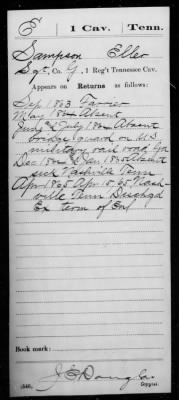 E | 1 Cav. | Tenn.
Sampson Eller
Sgt, Co. G, 1 Reg't Tennessee Cav.
Appears on Returns as follows:
Sep 1863 Farrier
May 1864 Absent
June & July 1864 Absent
bridge guard on U.S.
military rail road
Dec 1864 & Jan 1865 Absent
sick Nashville Tenn
Apr 1865 Apr 10 65 Nash-
ville Tenn Dischgd
Ex term of Enl
Book mark:
(546)
Copyist.